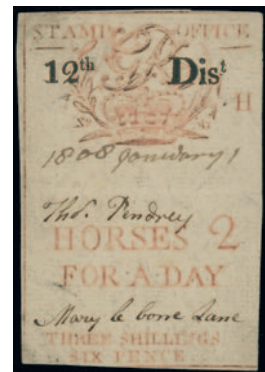 STAMP OFFICE
GR
12th Dist
1808 January 1
Thos. Pendrey
HORSES 2
FOR·A·DAY
Mary le bone Lane
THREE SHILLINGS
SIX PENCE